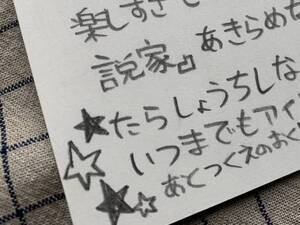 楽しすぎて
説家」あきらめ
たらしょうちしな
いつまでもアイ
あとつくえのおく